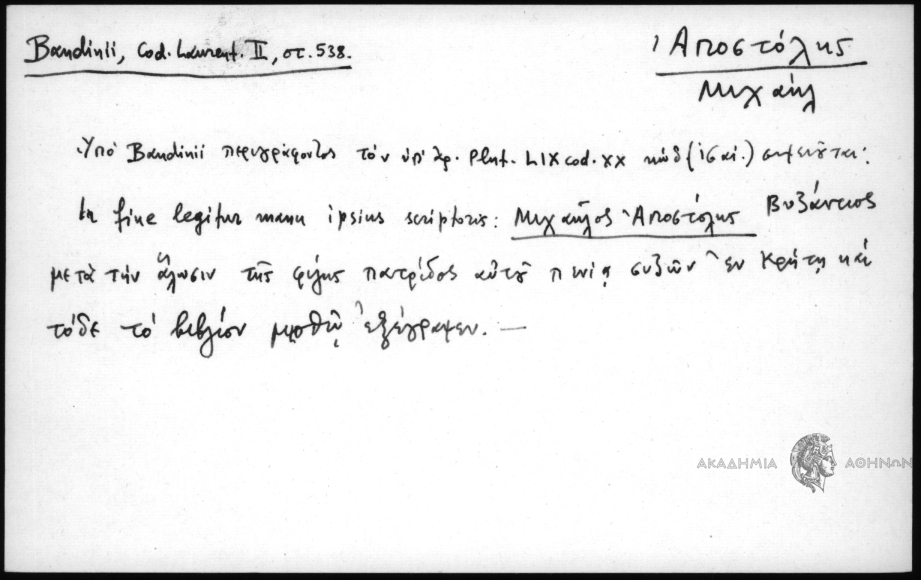 Bandinii, Cod. Laurent. II, στ. 538.
Ἀποστόλης
Μιχαήλ
Ὑπὸ Bandinii περιγράφοντος τὸν ὑπ' ἀρ. Plut. LIX cod. XX κώδ (ις αἰ.) σημειοῦται:
In fine legitur manu ipsius scriptoris: Μιχαῆλος Ἀποστόλης Βυζάντιος
μετὰ τὴν ἅλωσιν τῆς φίλης πατρίδος αὐτοῦ πενίᾳ συζῶν ἐν Κρήτῃ καὶ
τόδε τὸ βιβλίον μισθῷ ἐξέγραψεν. —
ΑΚΑΔΗΜΙΑ ΑΘΗΝΩΝ